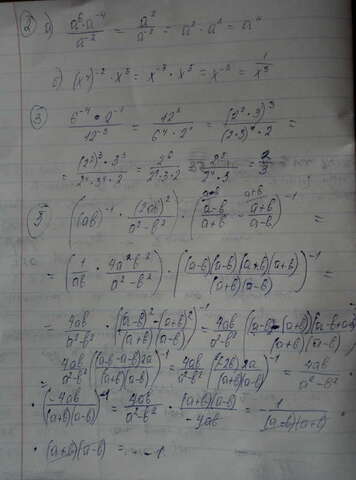 ② а) a⁶·a⁻⁴ / a⁻² = a² / a⁻² = a²·a² = a⁴
б) (x⁴)⁻² · x⁵ = x⁻⁸ · x⁵ = x⁻³ = 1/x³
③ 6⁻⁴ · 2⁻¹ / 12⁻³ = 12³ / 6⁴·2 = (2²·3)³ / (2·3)⁴·2 =
= (2²)³·3³ / 2⁴·3⁴·2 = 2⁶ / 2⁴·3·2 = 2/3
⑤ ((ab)⁻¹ · (2ab)² / a²-b²) · (a-b / a+b - a+b / a-b)⁻¹ =
= (1/ab · 4a²b² / a²-b²) · ((a-b)(a-b)-(a+b)(a+b) / (a+b)(a-b))⁻¹ =
= 4ab / a²-b² · ((a-b)²-(a+b)² / (a+b)(a-b))⁻¹ = 4ab / a²-b² · ((a-b)-(a+b))(a-b+a+b) / (a+b)(a-b)
= 4ab / a²-b² · ((a-b-a-b)2a / (a+b)(a-b))⁻¹ = 4ab / a²-b² · ((-2b)2a / (a+b)(a-b))⁻¹ = 4ab / a²-b² ·
· (-4ab / (a+b)(a-b))⁻¹ = 4ab / a²-b² · (a+b)(a-b) / -4ab = 1 / (a-b)(a+b) ·
· (a+b)(a-b) = -1.